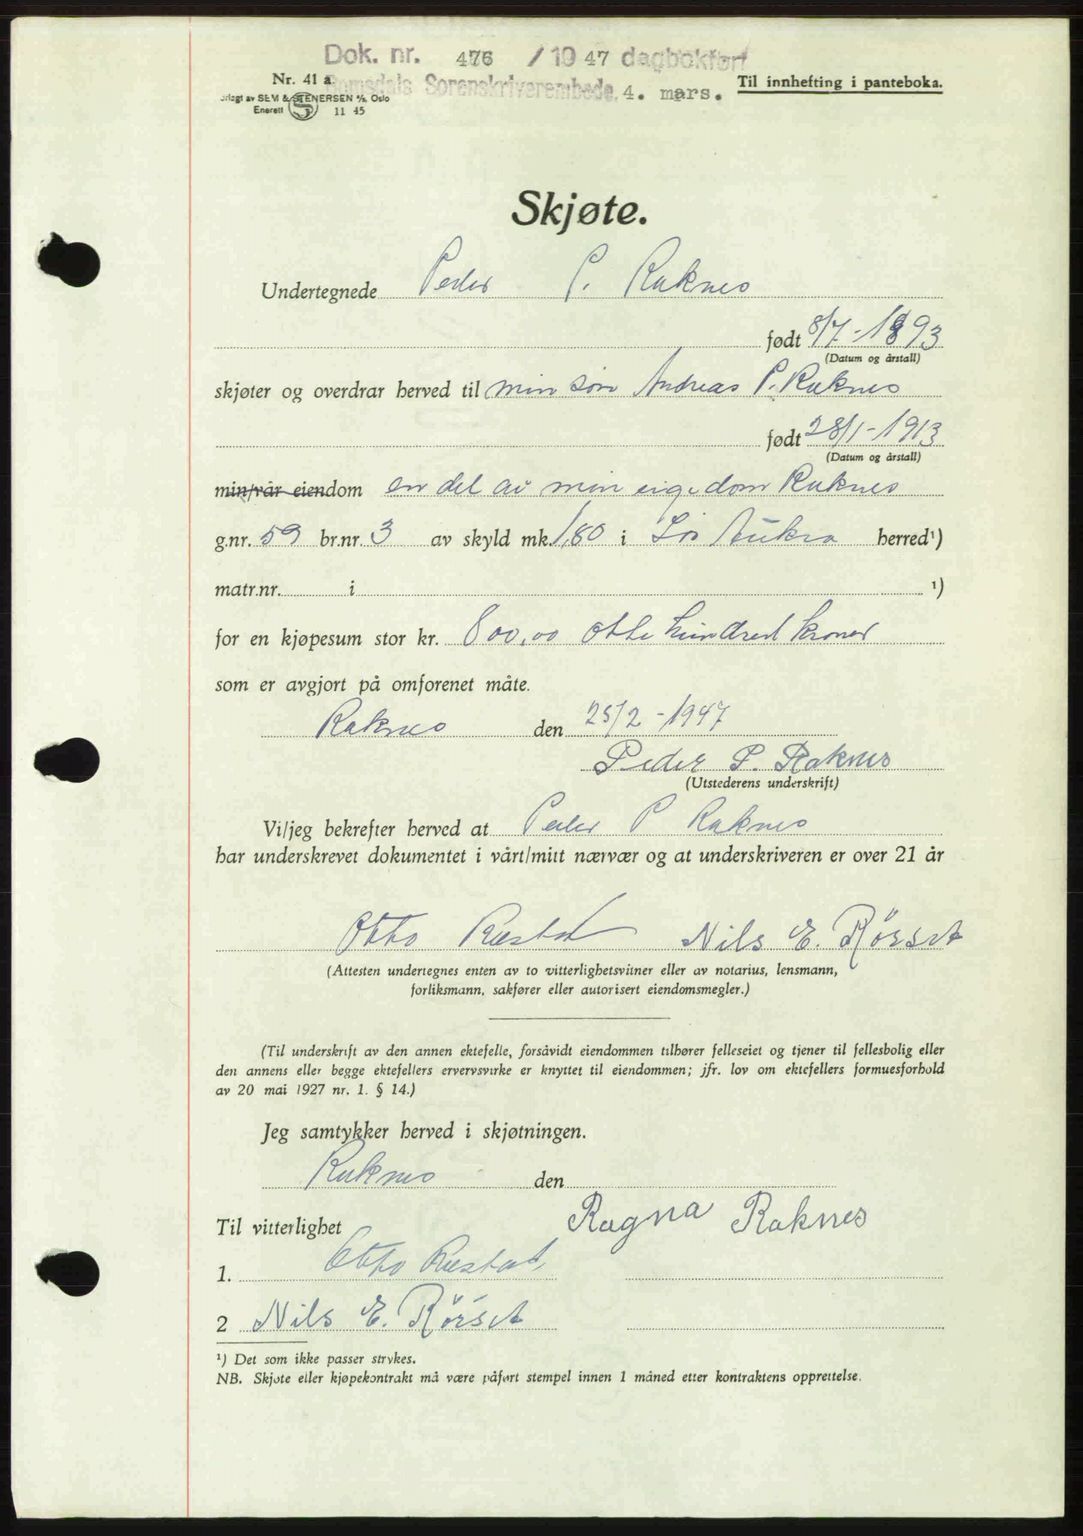 Dok. nr. 476 / 1947 dagbokført
Nr. 41 a. Romsdals Sorenskriverembede 4. mars. Til innhefting i panteboka.
SEM & STENERSEN A/S, Oslo
Enerett 11 45
Skjøte.
Undertegnede Peder P. Raknes
født 8/7-1893
(Datum og årstall)
skjøter og overdrar herved til min søn Andreas P. Raknes
født 28/1-1913
(Datum og årstall)
min/vår eiendom en del av min eigedom Raknes
g.nr. 59 br.nr. 3 av skyld mk. 1,80 i Sør Aukra herred¹)
matr.nr. i ¹)
for en kjøpesum stor kr. 800,00 otte hundred kroner
som er avgjort på omforenet måte.
Raknes den 25/2-1947
Peder P. Raknes
(Utstederens underskrift)
Vi/jeg bekrefter herved at Peder P Raknes
har underskrevet dokumentet i vårt/mitt nærvær og at underskriveren er over 21 år
Otto Nils E. Rörset
(Attesten undertegnes enten av to vitterlighetsvitner eller av notarius, lensmann,
forliksmann, sakfører eller autorisert eiendomsmegler.)
(Til underskrift av den annen ektefelle, forsåvidt eiendommen tilhører felleseiet og tjener til fellesbolig eller
den annens eller begge ektefellers ervervsvirke er knyttet til eiendommen; jfr. lov om ektefellers formuesforhold
av 20 mai 1927 nr. 1. § 14.)
Jeg samtykker herved i skjøtningen.
Raknes den
Til vitterlighet Ragna Raknes
1. Otto
2 Nils E. Rörset
¹) Det som ikke passer strykes.
NB. Skjøte eller kjøpekontrakt må være påført stempel innen 1 måned etter kontraktens opprettelse.